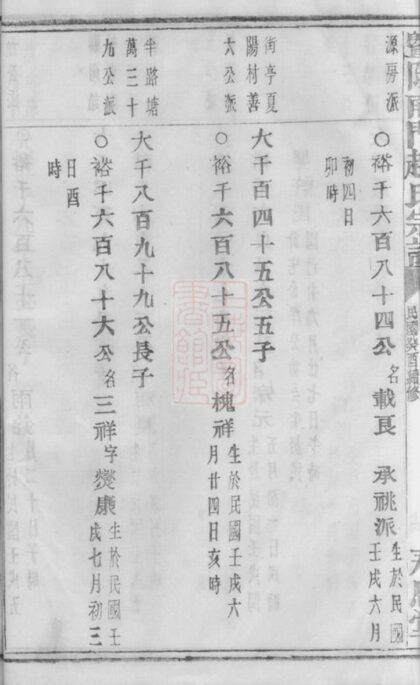 暨陽南門趙氏宗譜
民國癸酉續修
源房派
○裕千六百八十四公名載良 承祧派生於民國壬戌六月
初四日
卯時
街亭夏
陽村善
六公派
大千百四十五公五子
○裕千六百八十五公名槐祥生於民國壬戌六
月廿四日亥時
半路塘
萬三十
九公派
大千八百九十九公長子
○裕千六百八十六公名三祥字爕康生於民國壬
戌七月初三
日酉
時